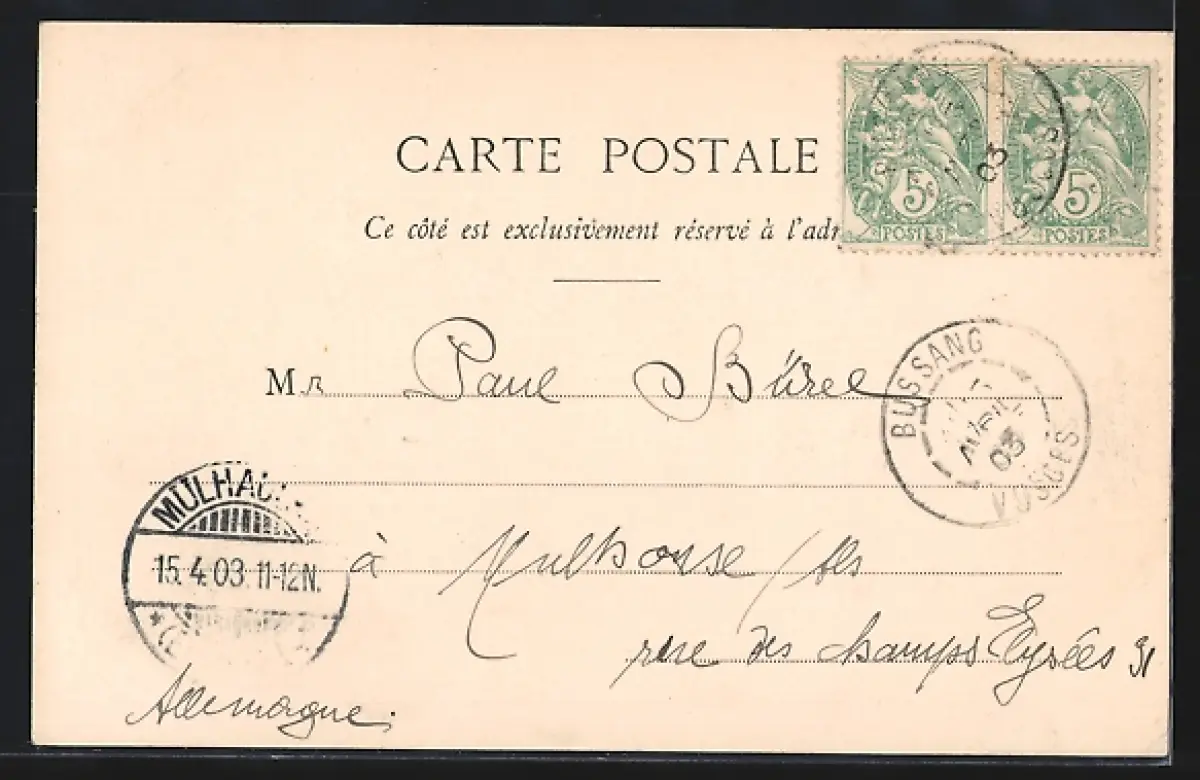 CARTE POSTALE
Ce côté est exclusivement réservé à l'adr
5c 5c
POSTES POSTES
03
Mr Paul Bürel
BUSSANG
AVRIL
03
VOSGES
MÜLHAU
15.4.03.11-12N.
à Mulhouse / Als
rue des champs Elysées 31
Allemagne.